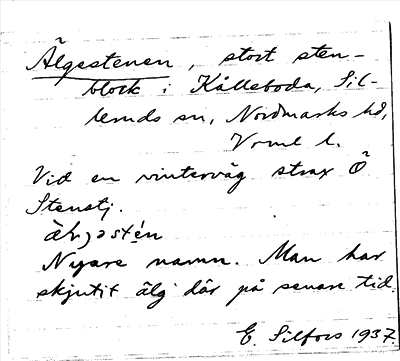 Älgestenen, stort sten-
block i Kålleboda, Sil-
leruds sn, Nordmarks hd,
Vrml l.
Vid en vinterväg strax Ö
Stenstj.
Nyare namn. Man har
skjutit älg där på senare tid.
E. Silfors 1937.